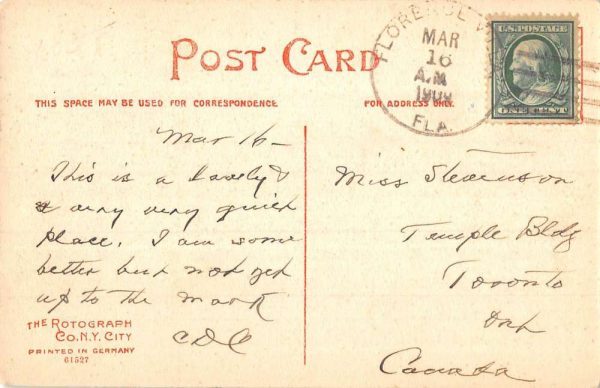 POST CARD
THIS SPACE MAY BE USED FOR CORRESPONDENCE
FOR ADDRESS ONLY.
FLORENCE
MAR
16
A.M.
1909
FLA.
U.S. POSTAGE
ONE CENT
Mar 16 -
This is a lovely &
a very very quiet
place. I am some
better but not yet
up to the mark
CDC
Miss Stevenson
Temple Bldg
Toronto
Ont
Canada
THE ROTOGRAPH
CO. N.Y. CITY
PRINTED IN GERMANY
61527